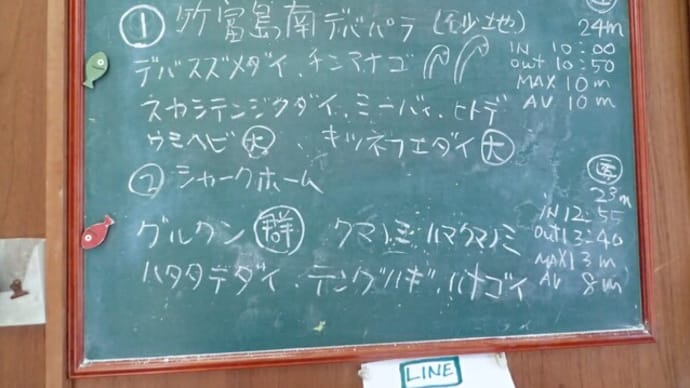 ① 竹富島っ南デバパラ (砂地) 24m
IN 10:00
out 10:50
MAX 10m
AV 10m
デバスズメダイ、チンアナゴ
スカシテンジクダイ、ミーバイ、ヒトデ
ウミヘビ 大、キツネフエダイ 大
② シャークホーム
23m
IN 12:55
out 13:40
MAX 13m
AV 8m
グルクン 群 クマノミ ハマクマノミ
ハタタテダイ、テングハギ、ハナゴイ
LINE